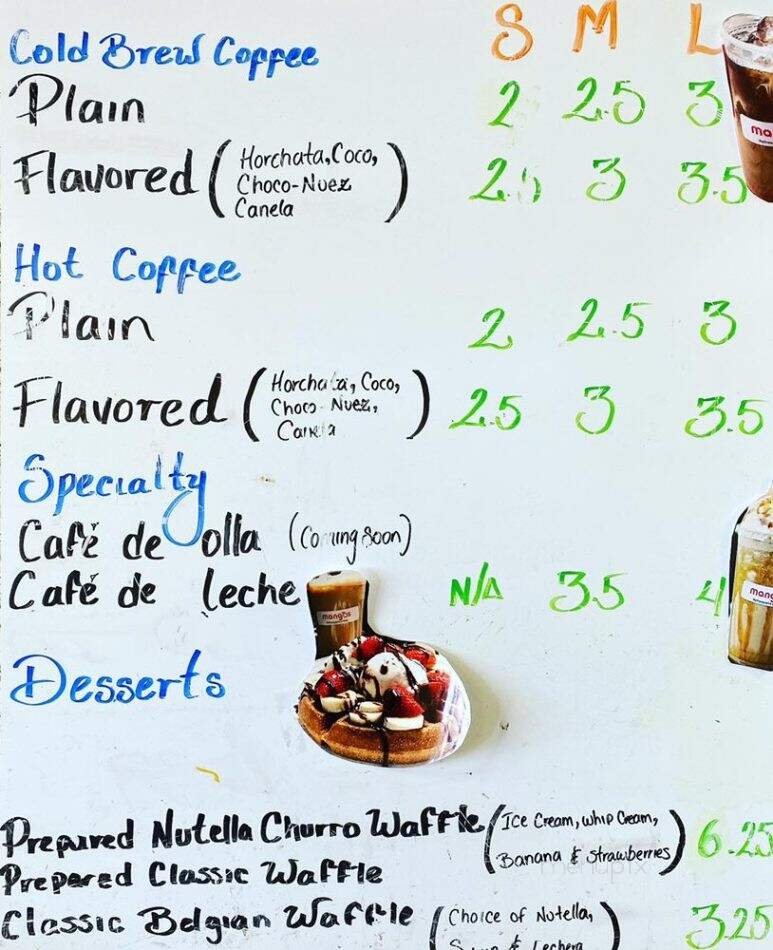 S M L
Cold Brew Coffee
Plain 2 2.5 3
Flavored (Horchata, Coco, 2.5 3 3.5
Choco-Nuez
Canela)
Hot Coffee
Plain 2 2.5 3
Flavored (Horchata, Coco, 2.5 3 3.5
Choco-Nuez,
Canela)
Specialty
Café de olla (Coming Soon)
Café de leche N/A 3.5 4
mangos
Desserts
Prepared Nutella Churro Waffle (Ice Cream, Whip Cream, 6.25
Banana & Strawberries)
Prepared Classic Waffle
Classic Belgian Waffle (Choice of Nutella, 3.25
& Lechera